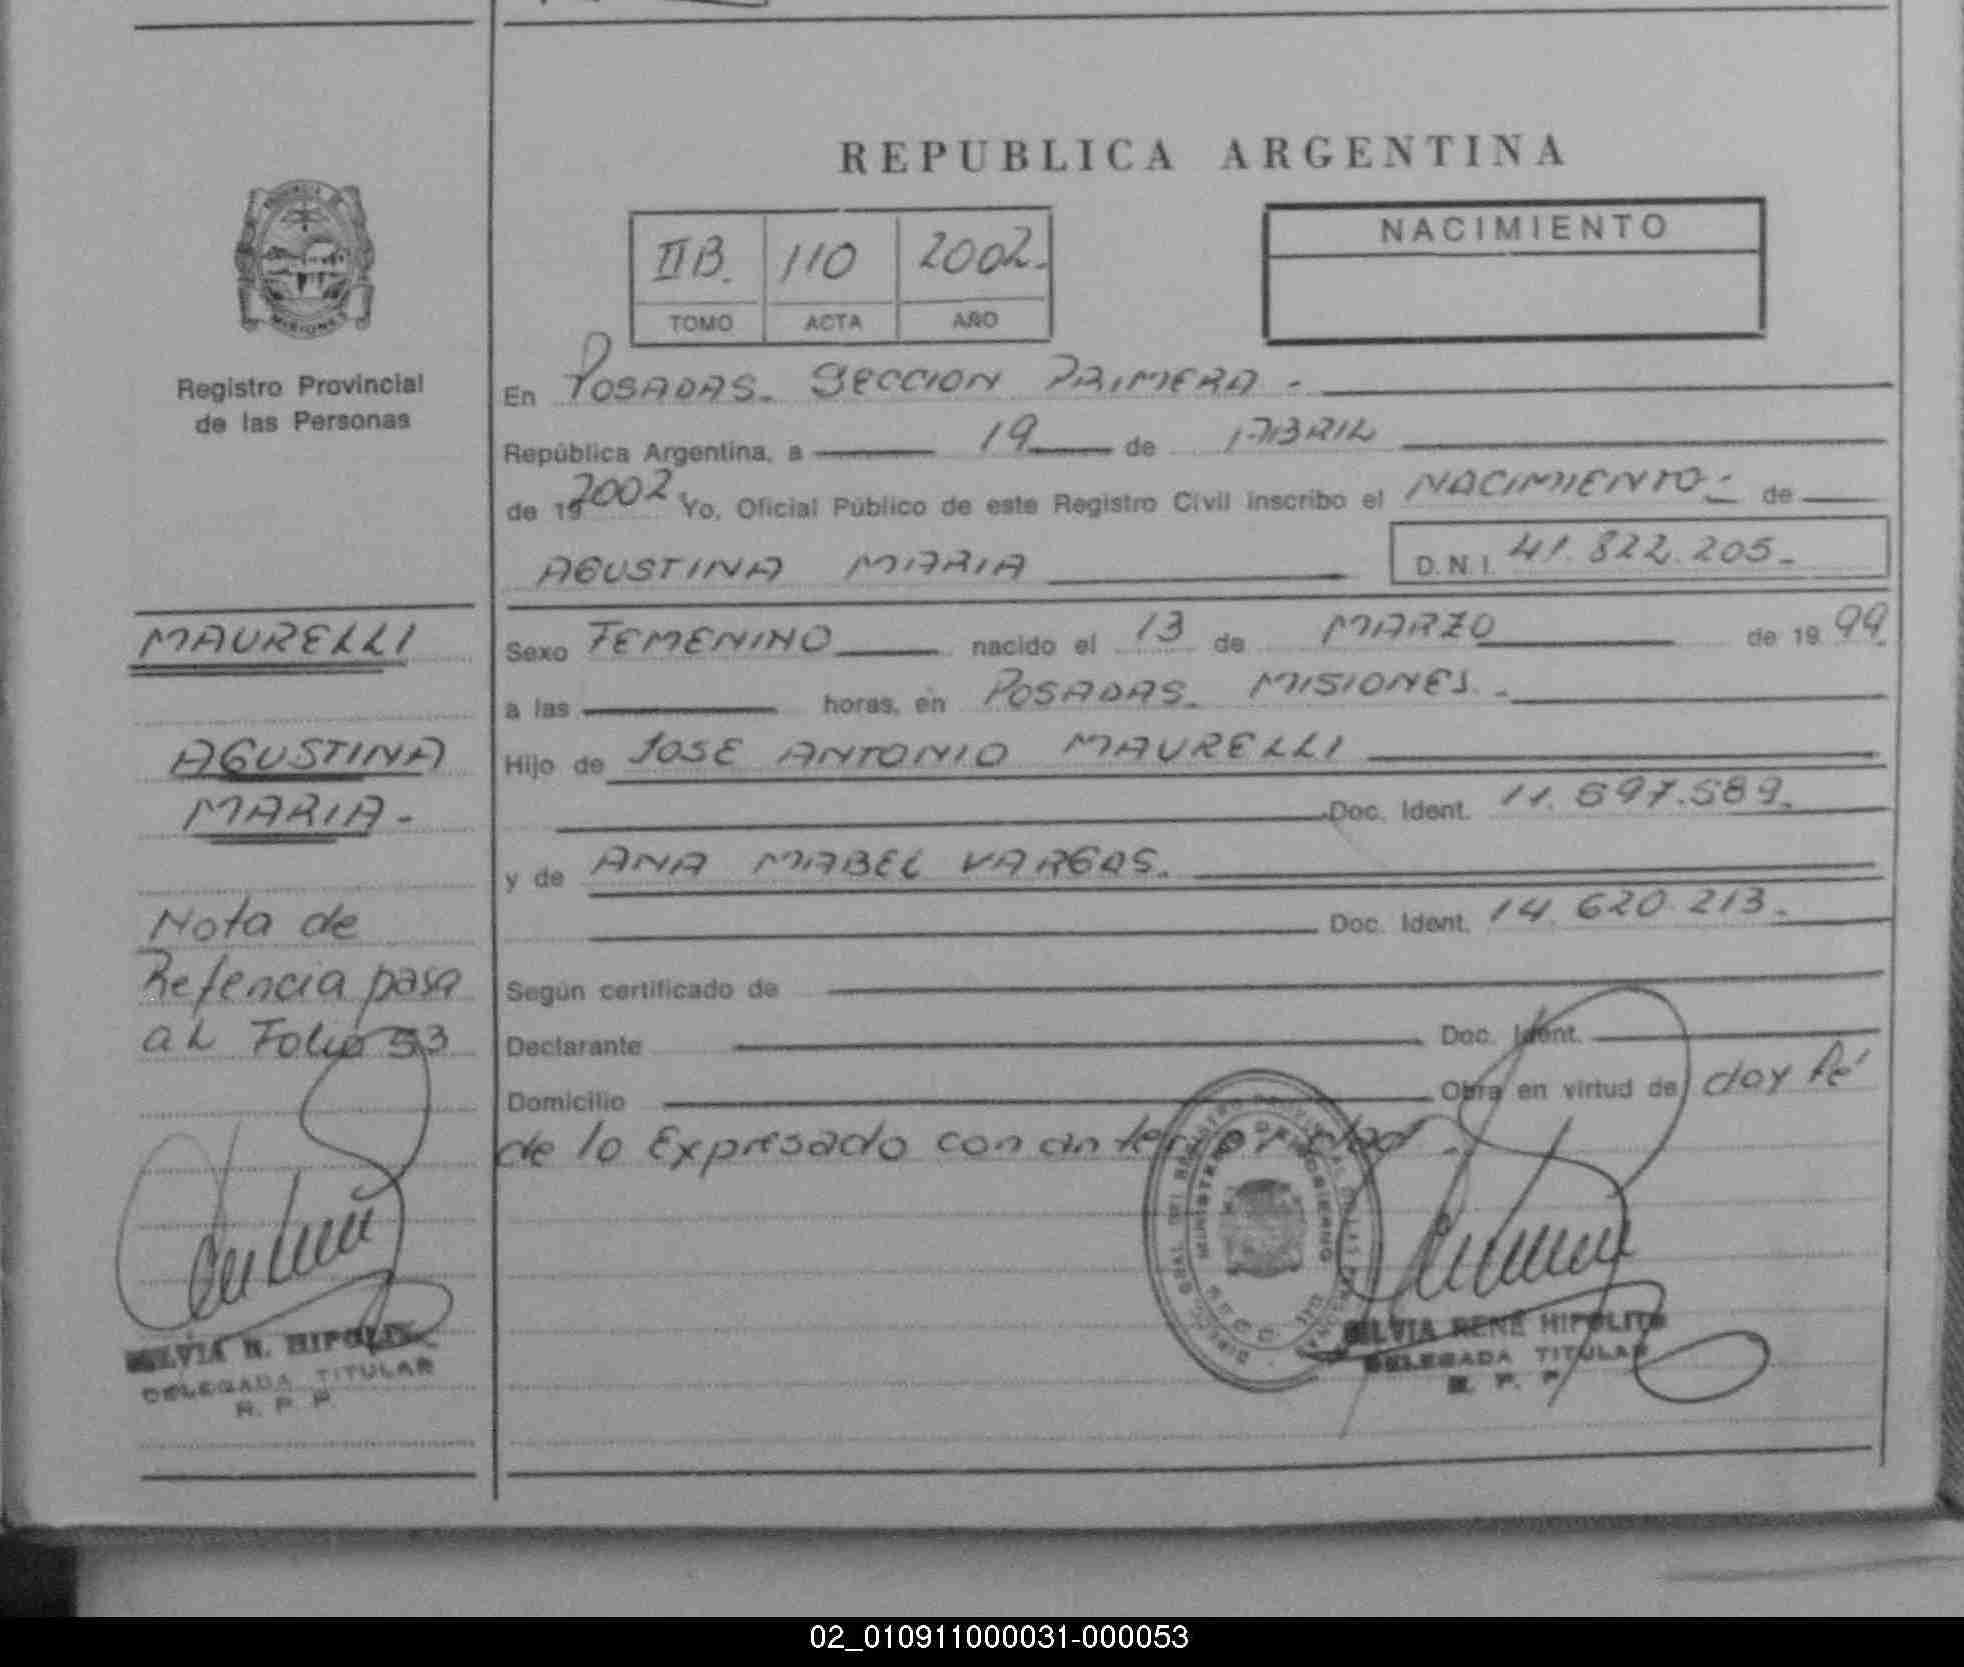 REPUBLICA ARGENTINA
IIB. 110 2002.
TOMO ACTA AÑO
NACIMIENTO
MISIONES
Registro Provincial
de las Personas
En POSADAS. SECCION PRIMERA.
República Argentina, a 19 de ABRIL
de 19 2002. Yo, Oficial Público de este Registro Civil inscribo el NACIMIENTO. de
AGUSTINA MARIA D.N.I. 41.822.205.
MAURELLI
AGUSTINA
MARIA.
Nota de
Refencia pasa
al Folio 53
SILVIA R. HIPOLITO
DELEGADA TITULAR
R. P. P.
Sexo FEMENINO nacido el 13 de MARZO de 19 99.
a las horas, en POSADAS. MISIONES.
Hijo de JOSE ANTONIO MAURELLI
Doc. Ident. 11.697.589.
y de ANA MABEL VARGAS.
Doc. Ident. 14.620.213.
Según certificado de
Declarante Doc. Ident.
Domicilio Obra en virtud de doy fé
de lo Expresado con anterioridad.
MINISTERIO DE GOBIERNO
SILVIA RENÉ HIPOLITO
DELEGADA TITULAR
R. P. P.
02_010911000031-000053